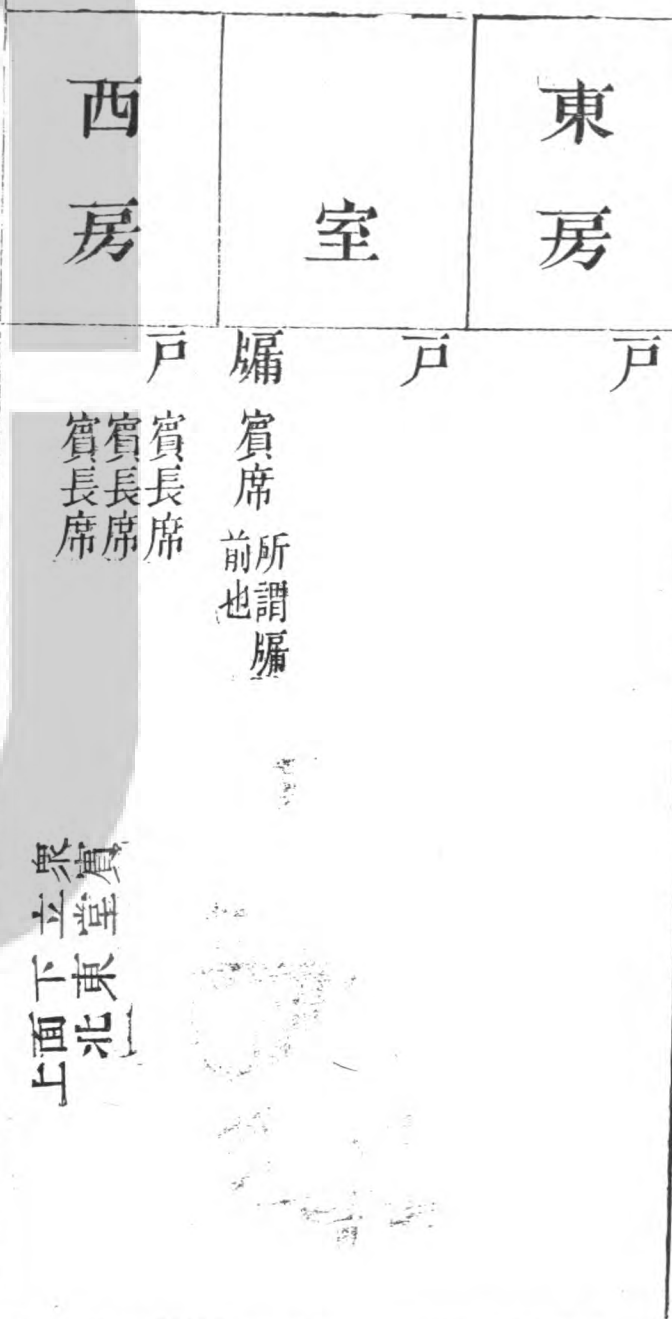 東房
室
西房
戶
戶
牖
戶
賓席
所謂牖
前也
賓長席
賓長席
賓長席
衆賓
立堂
下東
面北
上